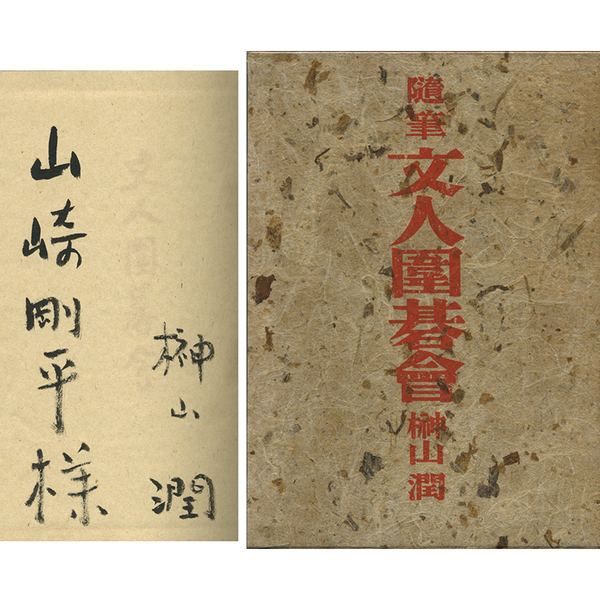 山崎剛平様
榊山潤
隨筆
文人圍碁會
榊山潤